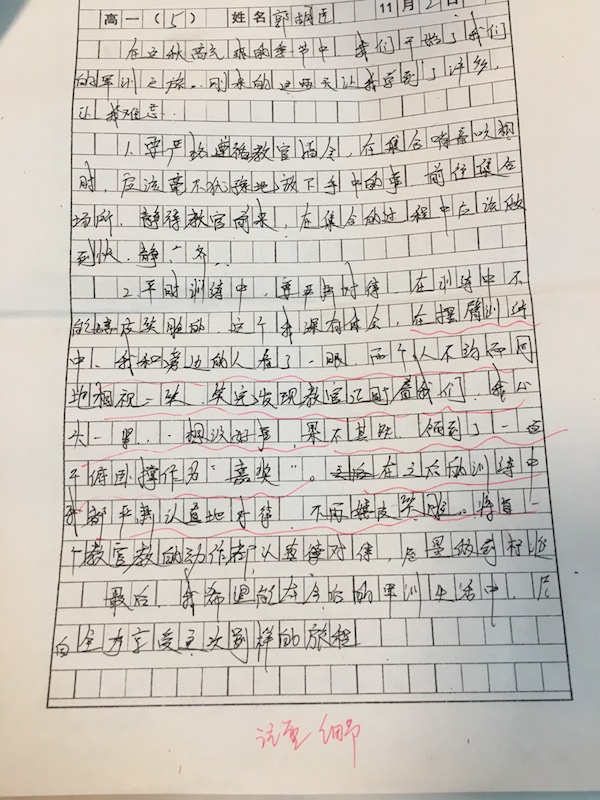 高一(5) 姓名 郭 11月2日
在这秋高气爽的季节中,我们开始了我们
的军训之旅。刚来的这两天让我学到了许多,
让我难忘。
1.要严格遵循教官指令,在集合哨音吹响
时,应该毫不犹豫地放下手中的事,前往集合
场所,静待教官前来,在集合的过程中应该做
到快、静、齐。
2.平时训练中,要严肃对待,在训练中不
能嬉皮笑脸的,这个我深有体会,在摆臂训练
中,我和旁边的人看了一眼,两个人不约而同
地相视一笑,笑完发现教官正盯着我们,我心
头一紧,果不其然,领到了一百
个俯卧撑作为“嘉奖”。在之后的训练中
我都严肃认真地对待,不再嬉皮笑脸。将每一
个教官教的动作都认真对待,尽量做到标准
最后,我希望能在今后的军训生活中,尽
自全力享受这次别样的旅程
注重细节